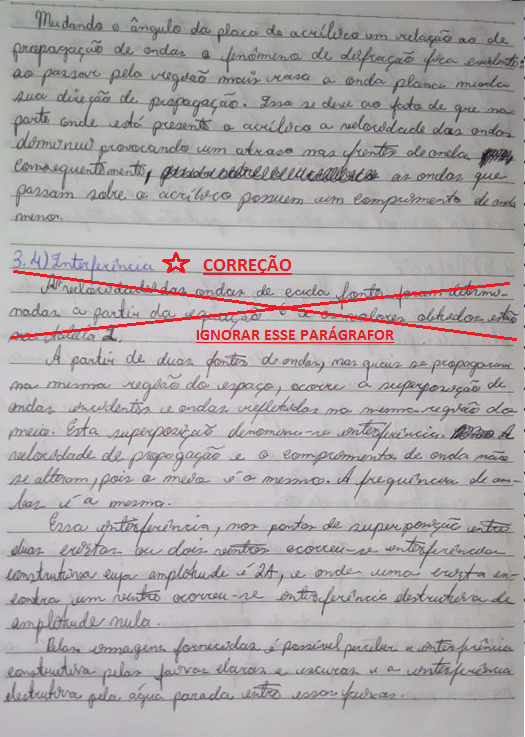 Mudando o ângulo da placa de acrílico em relação ao de
propagação de ondas o fenômeno de difração fica evidente:
ao passar pela região mais rasa a onda plana muda
sua direção de propagação. Isso se deve ao fato de que na
parte onde está presente o acrílico a velocidade das ondas
diminui provocando um atraso nas frentes de onda
consequentemente, as ondas que
passam sobre o acrílico possuem um comprimento de onda
menor.
3.4) Interferência ☆ CORREÇÃO
A velocidade das ondas de cada fonte foram determi-
nadas a partir da equação e os valores obtidos estão
na tabela 2.
IGNORAR ESSE PARÁGRAFOR
A partir de duas fontes de ondas, nas quais se propagaram
na mesma região do espaço, ocorre a superposição de
ondas incidentes e ondas refletidas na mesma região do
meio. Esta superposição denomina-se interferência. A
velocidade de propagação e o comprimento de onda não
se alteram, pois o meio é o mesmo. A frequência de am-
bas é a mesma.
Essa interferência, nos pontos de superposição entre
duas cristas ou dois ventres ocorreu-se interferência
construtiva cuja amplitude é 2A, e onde uma crista en-
contra um ventre ocorreu-se interferência destrutiva de
amplitude nula.
Pelas imagens fornecidas é possível perceber a interferência
construtiva pelas faixas claras e escuras e a interferência
destrutiva pela água parada entre essas faixas.